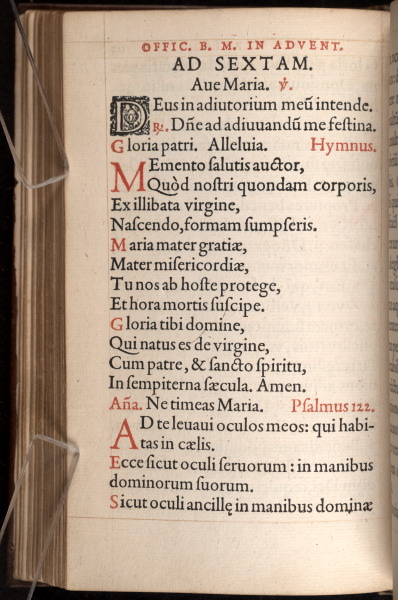 OFFIC. B. M. IN ADVENT.
AD SEXTAM.
Aue Maria. ℣.
DEus in adiutorium meũ intende.
℟. Dñe ad adiuuandũ me feſtina.
Gloria patri. Alleluia. Hymnus.
MEmento ſalutis auctor,
Quòd noſtri quondam corporis,
Ex illibata virgine,
Naſcendo, formam ſumpſeris.
Maria mater gratiæ,
Mater miſericordiæ,
Tu nos ab hoſte protege,
Et hora mortis ſuſcipe.
Gloria tibi domine,
Qui natus es de virgine,
Cum patre, & ſancto ſpiritu,
In ſempiterna ſæcula. Amen.
Aña. Ne timeas Maria. Pſalmus 122.
AD te leuaui oculos meos: qui habi-
tas in cælis.
Ecce ſicut oculi ſeruorum: in manibus
dominorum ſuorum.
Sicut oculi ancillę in manibus dominæ